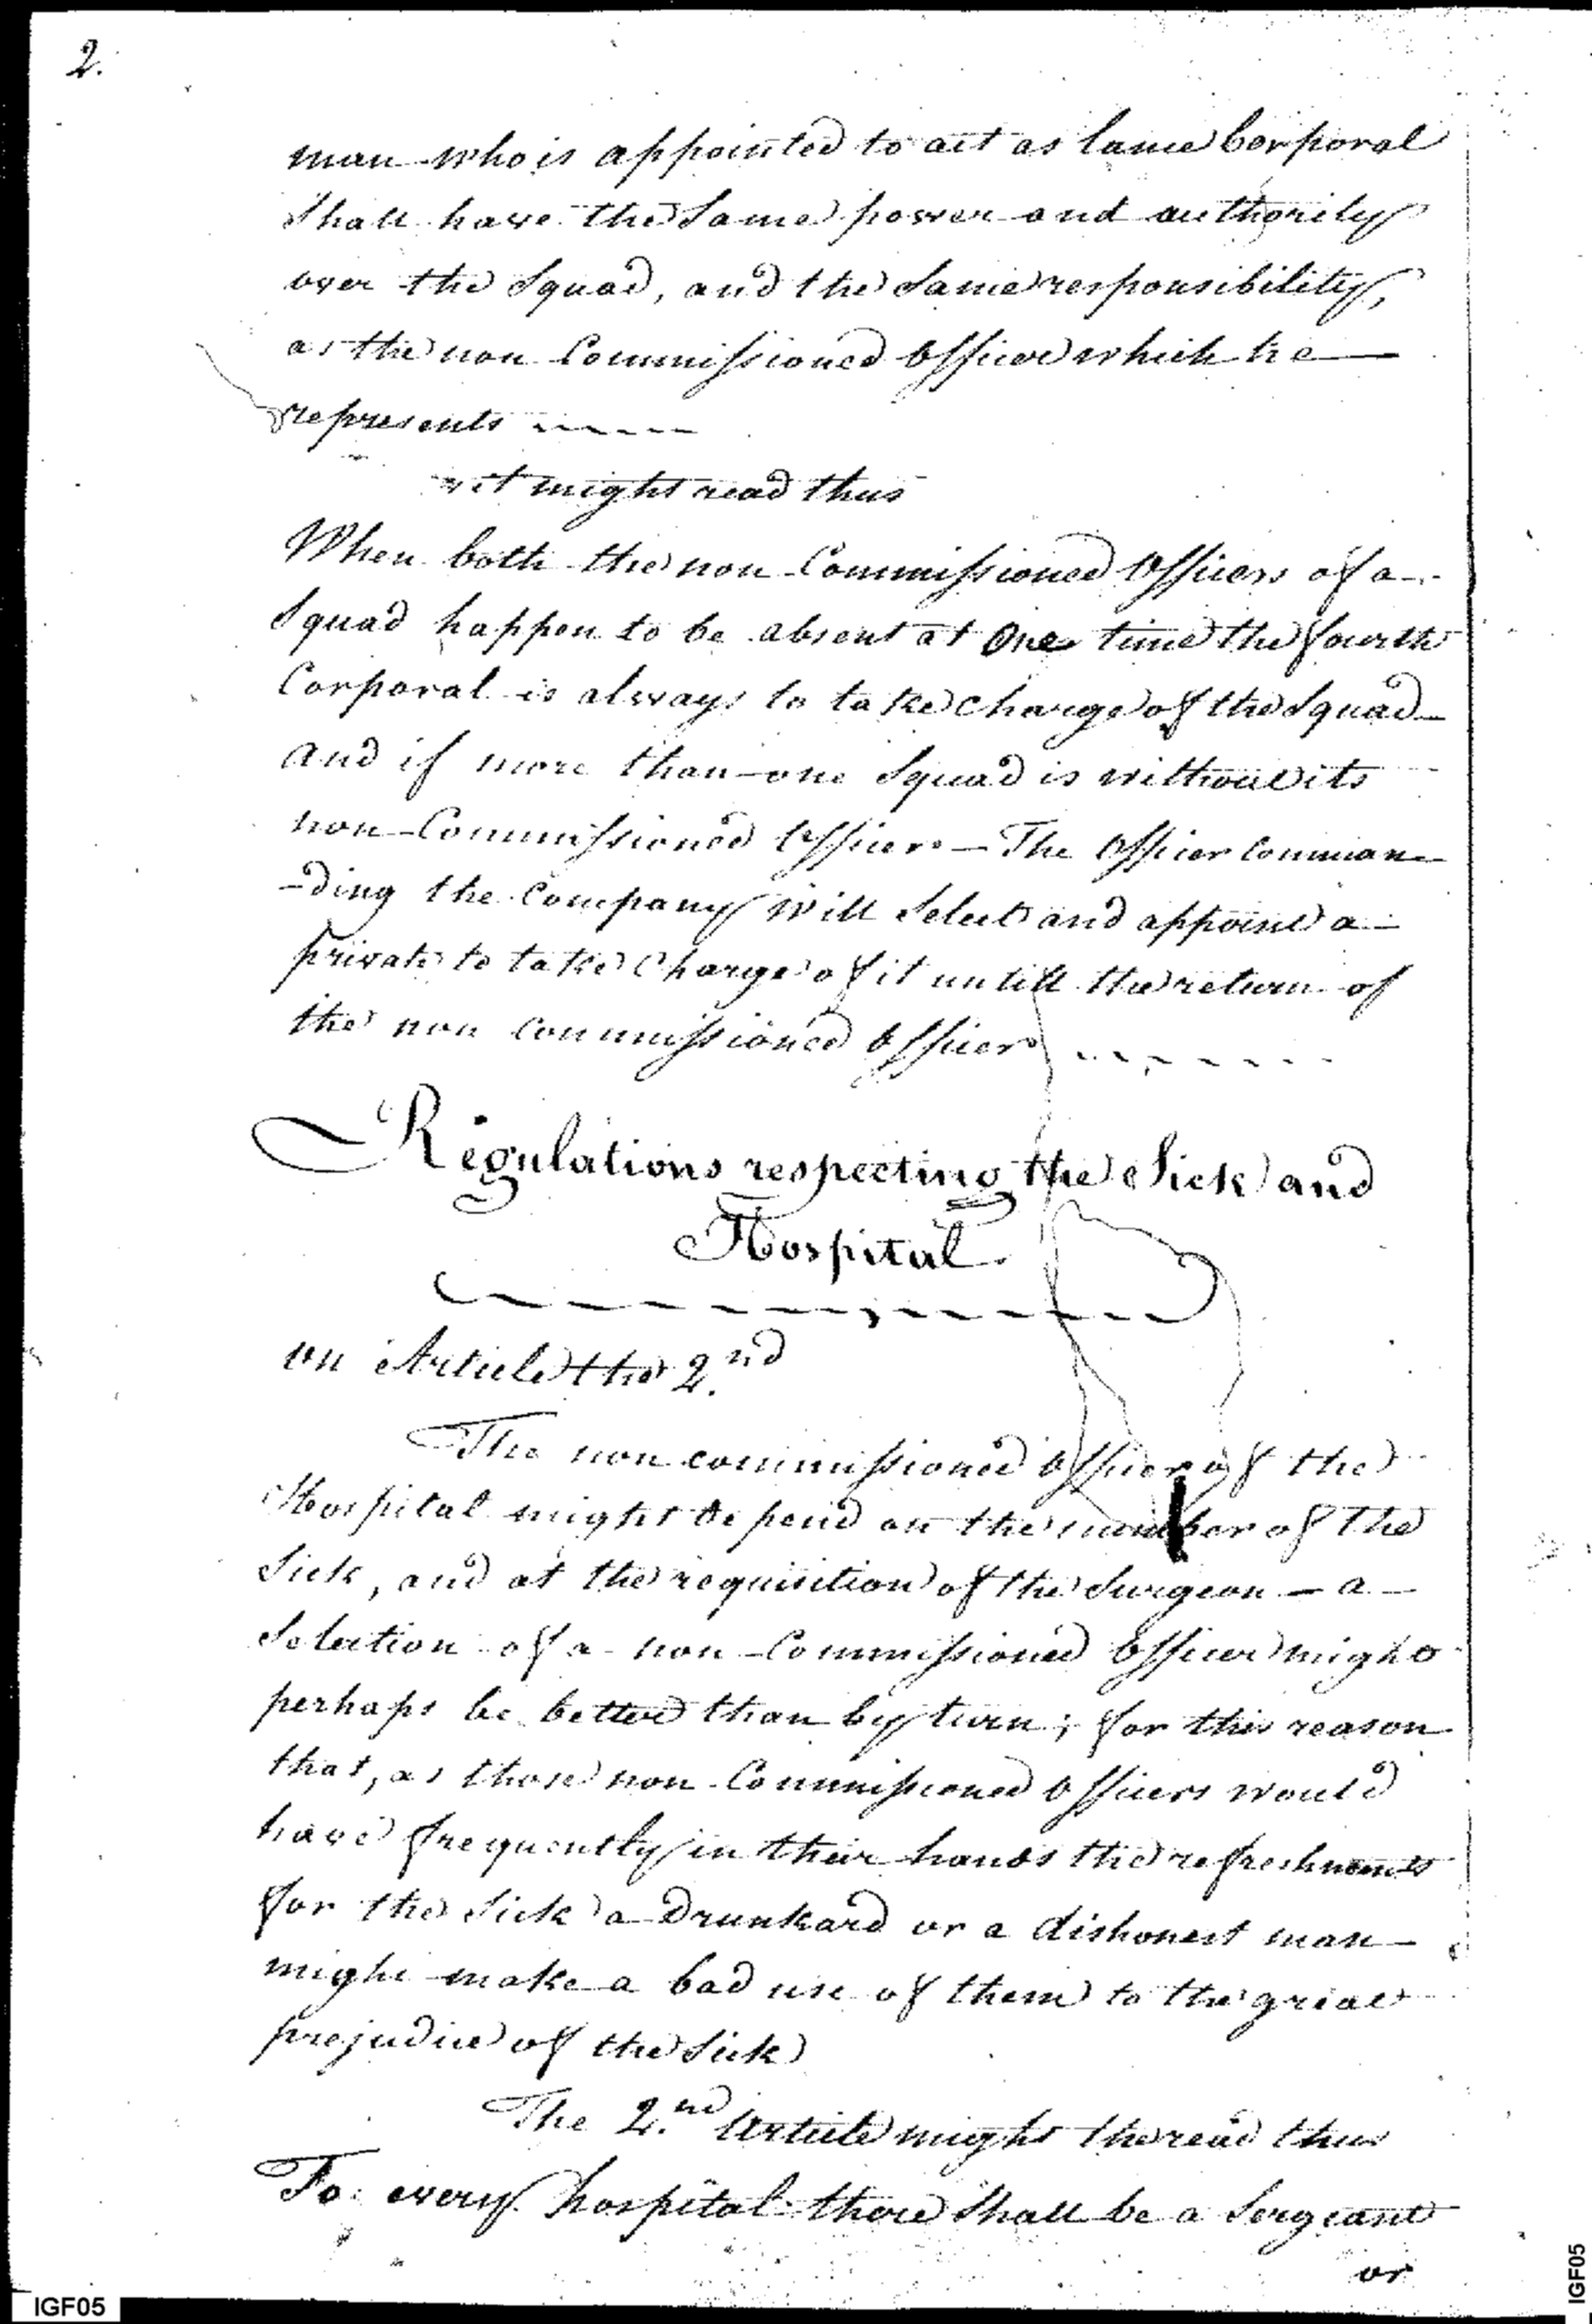 2.
man who is appointed to act as lance Corporal
Shall have the Same power and authority
over the Squad, and the Same responsibility,
as the non Commissioned Officer which he
represents -----
it might read thus
When both the non Commissioned Officers of a
Squad happen to be absent at One time the fourth
Corporal is always to take charge of the Squad
and if more than one Squad is without its
non-Commissioned Officers — The Officer Comman-
-ding the Company will Select and appoint a
private to take Charge of it untill the return of
the non Commissioned Officer -------
Regulations respecting the Sick and
Hospital.
on Article the 2.nd
The non commissioned Officer of the
Hospital might depend on the number of The
Sick, and at the requisition of the Surgeon — a —
Selection of a non-Commissioned Officer might
perhaps be better than by turn; for this reason
that, as those non-Commissioned Officers would
have frequently in their hands the refreshments
for the Sick a Drunkard or a dishonest man
might make a bad use of them to the great
prejudice of the Sick
The 2.nd Article might the read thus
To every hospital there Shall be a Sergeant
or
IGF05
IGF05